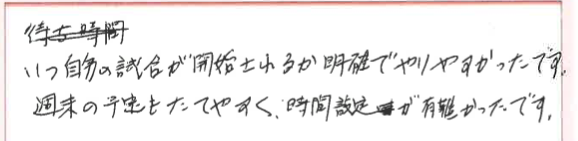 待ち時間
いつ自分の試合が開始されるか明確でやりやすかったです。
週末の予定もたてやすく、時間設定が有難かったです。